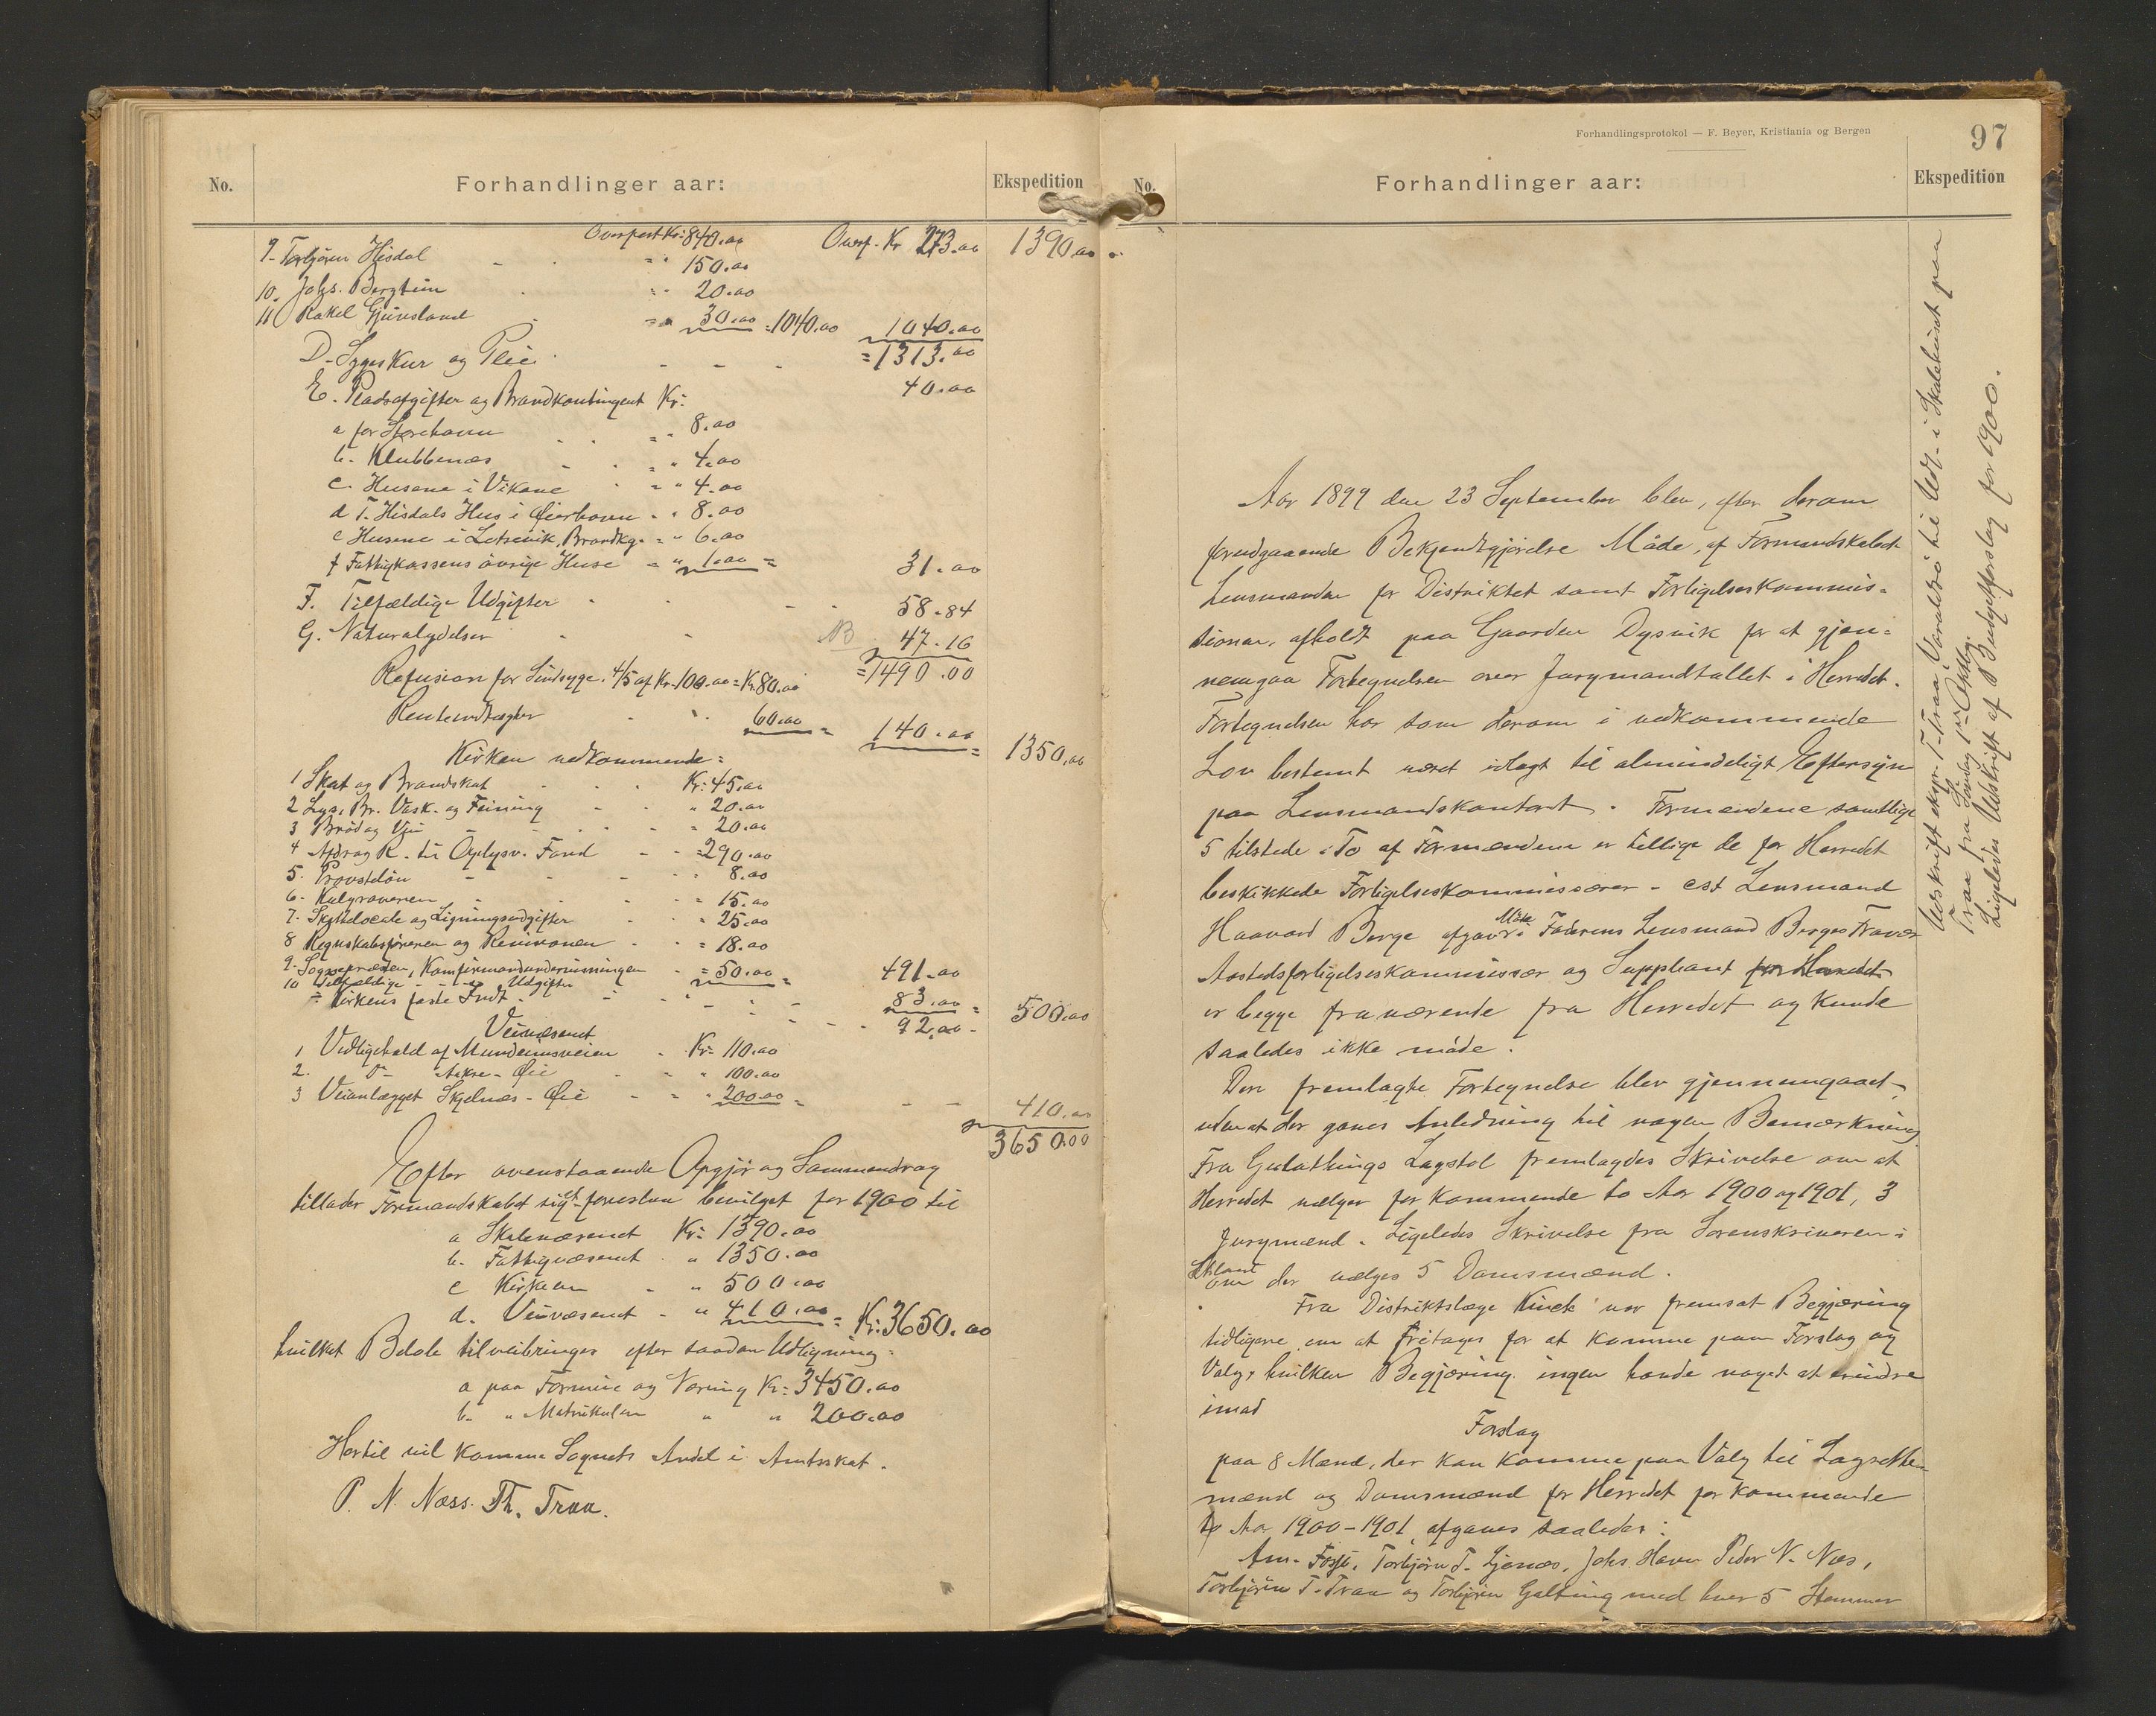 No.
Forhandlinger aar:
Ekspedition
Overført Kr: 840.00 Overf. Kr 273.00 1390.00
9. Torbjørn Hisdal - - " 150.00
10. Johs. Bergheim - " 20.00
11 Rakel Gjuvsland - = " 30.00 = 1040.00 1040.00
= 1313.00
D. Sygekur og Pleie - - - 40.00
E. Pladsafgifter og Brandkontingent Kr:
a for Storehavn - - = " 8.00
b. Klubbenæs - - = " 4.00
c. Husene i Vikane - = " 4.00
d T. Hisdals Hus i Øierhavn - " 8.00
e Husene i Letrevik, Brandkg. = " 6.00
f Fattigkassens övrige Huse = " 1.00 = 31.00
F. Tilfældige Udgifter - - - - 58.84
G. Naturalydelser - - NB 47.16
= 1490.00
Refusion for Sindsyge. 4/5 af Kr. 100.00 = Kr 80.00
Renteindtægter - - 60.00 = 140.00 = 1350.00
Kirken vedkommende:
1 Skat og Brandskat - - - Kr: 45.00
2 Lys, Br. Vask. og Feining - - " 20.00
3 Brød og Vin - - - - - " 20.00
4 Afdrag R. til Oplysn. Fond - - = 290.00
5. Provsteløn - - - - " 8.00
6. Kulgraveren - - - = " 15.00
7. Skydselocale og Ligningsudgifter - - " 25.00
8 Regnskabsføreren og Revisionen - - = 18.00
9. Sognepræsten, Konfirmandundervisningen - = 50.00 = 491.00
10 Tilfældige - - Udgifter
÷ Kirkens faste Indt. - - - - - 83.00 = 500.00
92.00 -
Veivæsenet
1 Vedligehold af Mundheimsveien - Kr: 110.00
2. do Aakre - Øie - - " 100.00
3 Veianlægget Skjelnæs - Øie - = " 200.00 = - - 410.00
3650.00
Efter ovenstaaende Opgjør og Sammendrag
tillader Formandskabet sig at foreslaa bevilget for 1900 til
a Skolevæsenet Kr: 1390.00
b. Fattigvæsenet - " 1350.00
c Kirken - - " 500.00
d. Veivæsenet - " 410.00 = Kr: 3650.00
hvilket Beløb tilveiebringes efter saadan Udligning:
a paa Formue og Næring Kr: 3450.00
b. " Matrikulen " " 200.00
Hertil vil komme Sognets Andel i Amtsskat.
P. N. Næss. Th. Traa.
Forhandlingsprotokol — F. Beyer, Kristiania og Bergen
97
No.
Forhandlinger aar:
Ekspedition
Aar 1899 den 23 September blev, efter derom
forudgaaende Bekjendtgjørelse Møde, af Formandskabet
Lensmanden for Distriktet samt Forligelseskommis=
sionen, afholdt paa Gaarden Dysvik for at gjen=
nemgaa Fortegnelsen over Jurymandtallet i Herredet.
Fortegnelsen har som derom i vedkommende
Lov bestemt været udlagt til almindeligt Eftersyn
paa Lensmandskontoret. Formændene samtlige
5 tilstede. To af Formændene er tillige de for Herredet
beskikkede Forligelseskommissærer - cst Lensmand
Haavard Berge afgav Møde i Faderens Lensmand Berges Fravær
Aastedsforligelseskommissær og Suppleant for Herredet
er begge fraværende fra Herredet og kunde
saaledes ikke møde.
Den fremlagte Fortegnelse blev gjennemgaaet,
uden at der gaves Anledning til nogen Bemærkning
Fra Gulathings Lagstol fremlagdes Skrivelse om at
Herredet vælger for kommende to Aar 1900 og 1901, 3
Jurymænd. Ligeledes Skrivelse fra Sorenskriveren i
om der vælges 5 Domsmænd.
Fra Distriktslæge Kinck var fremsat Begjæring
tidligere om at fritages for at komme paa Forslag og
Valg, hvilken Begjæring ingen havde noget at erindre
imod
Forslag
paa 8 Mænd, der kan komme paa Valg til Lagrette-
mænd og Domsmænd for Herredet for kommende
to Aar 1900-1901 afgaves saaledes:
Am. Fosse, Torbjørn T. Ljonæs, Johs Havn Peder N. Næs,
Torbjørn T. Traa og Torbjørn Gjelting med hver 5 Stemmer
Udskrift expr. T. Traa, Varaldsø til Udl. i Skolehuset paa
Traa fra Søndag 1ste
Ligeledes Udskrift af Budgetforslag for 1900.